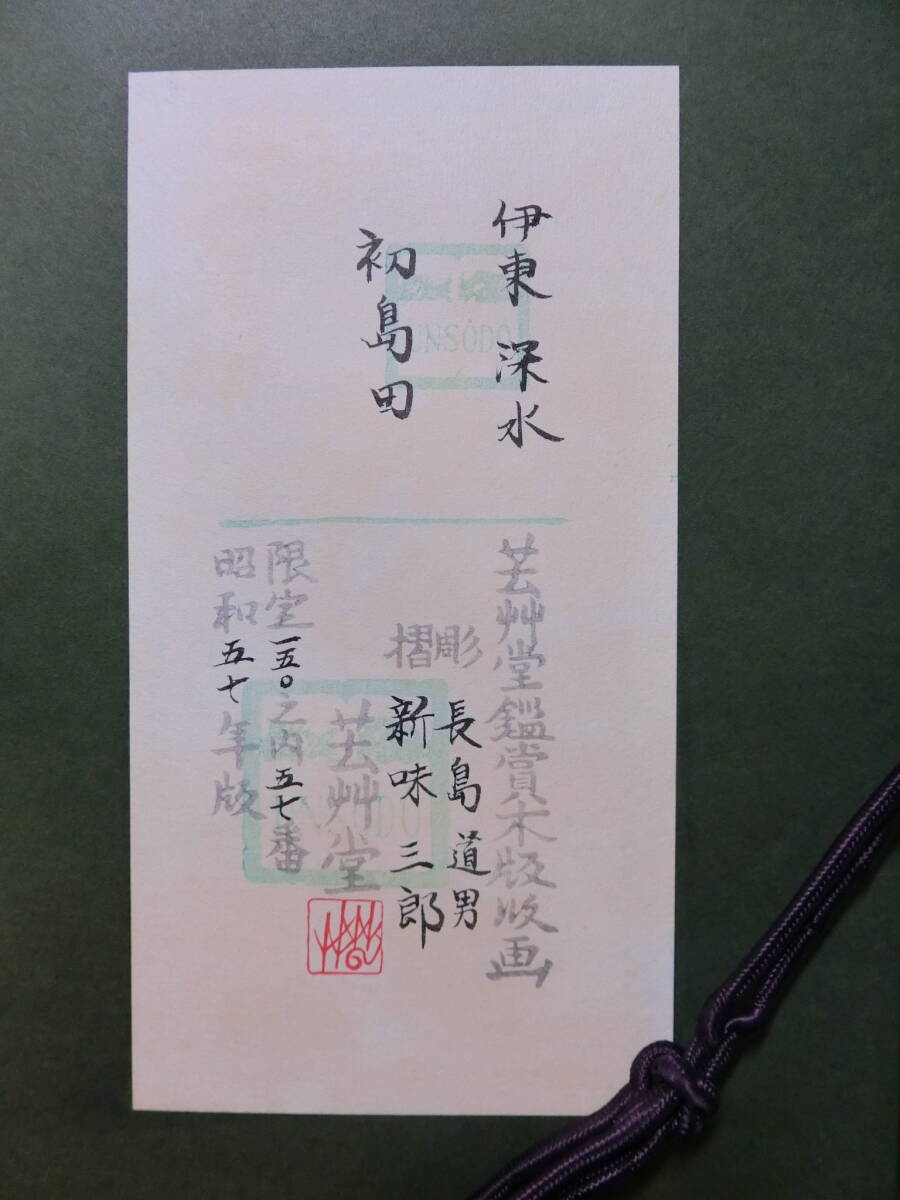 伊東 深水
初島田
UNSŌDŌ
芸艸堂鑑賞木版版画
彫 長島道男
摺 新味三郎
芸艸堂
限定一五〇之内五七番
昭和五七年版